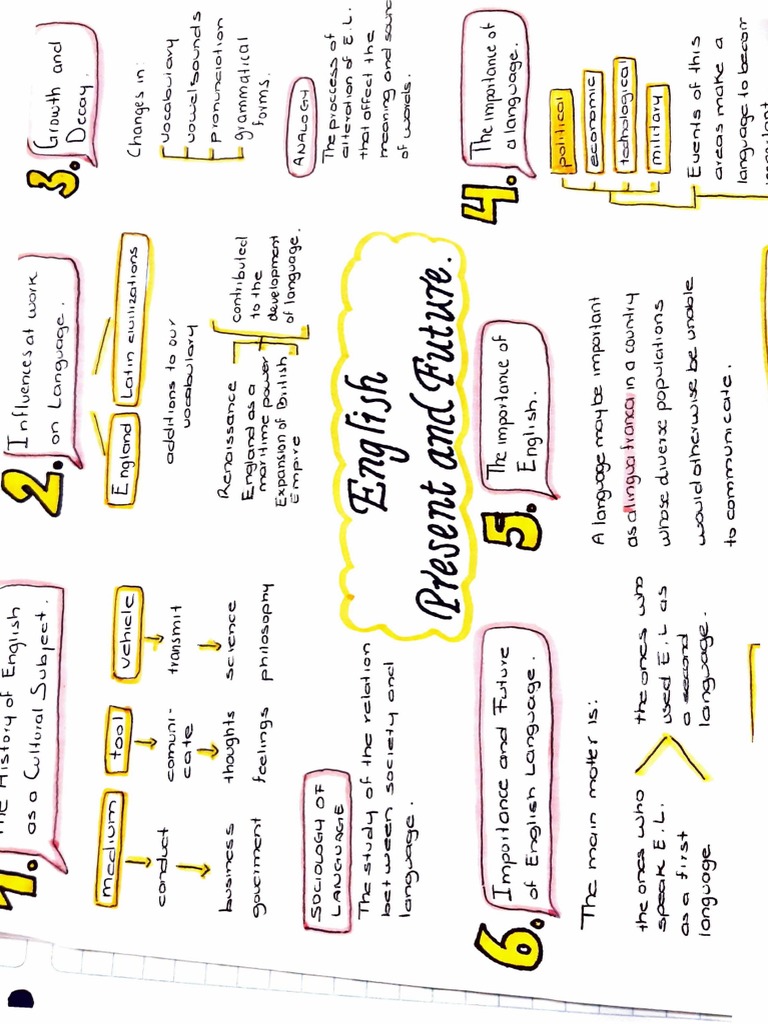 English
Present and Future.
1. The History of English
as a Cultural Subject.
medium
conduct
business
goverment
tool
comuni-
cate
thoughts
feelings
vehicle
transmit
science
philosophy
SOCIOLOGY OF
LANGUAGE
The study of the relation
between society and
language.
2. Influences at work
on Language.
England
Latin civilizations
additions to our
vocabulary
Renaissance
England as a
maritime power
Expansion of British
Empire
contributed
to the
development
of language.
3. Growth and
Decay.
Changes in:
vocabulary
vowel sounds
pronunciation
grammatical
forms.
ANALOGY
The process of
alteration of E.L.
that affect the
meaning and
of words.
4. The importance of
a language.
political
economic
techological
military
Events of this
areas make a
language to
5. The importance of
English.
A language maybe important
as a lingua franca in a country
whose diverse populations
would otherwise be unable
to communicate.
6. Importance and Future
of English Language.
The main matter is:
the ones who
speak E.L.
as a first
language
the ones who
used E.L as
a second
language.